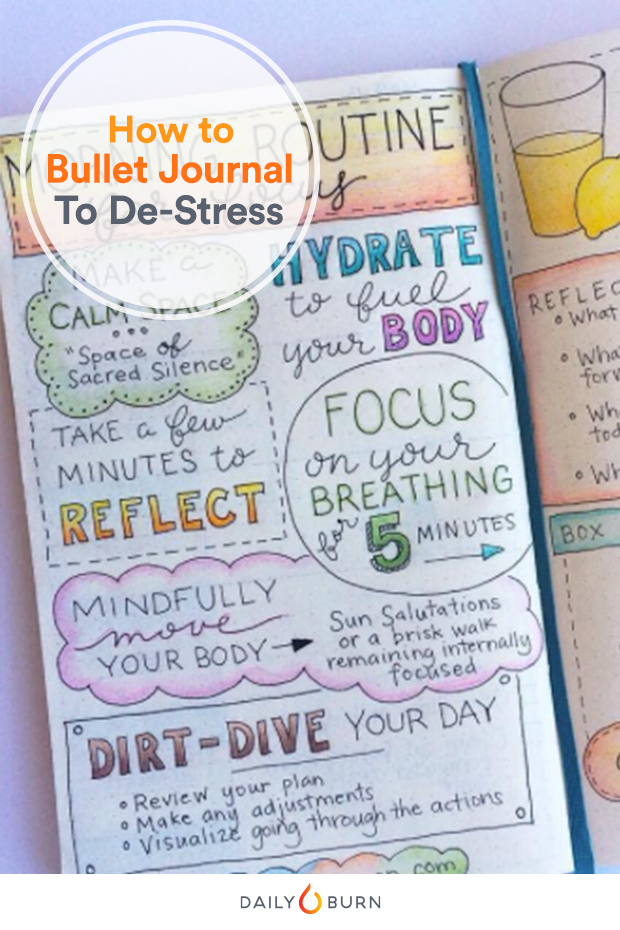 How to
Bullet Journal
To De-Stress
MORNING ROUTINE
for focus
MAKE a
CALM SPACE
"Space of
Sacred Silence"
HYDRATE
to fuel
your BODY
TAKE a few
MINUTES to
REFLECT
FOCUS
on your
BREATHING
for 5 MINUTES
MINDFULLY
move
YOUR BODY
Sun Salutations
or a brisk walk
remaining internally
focused
DIRT-DIVE YOUR DAY
Review your plan
Make any adjustments
Visualize going through the actions
com
REFLEC
What
What
Wh
Wh
BOX
DAILY BURN